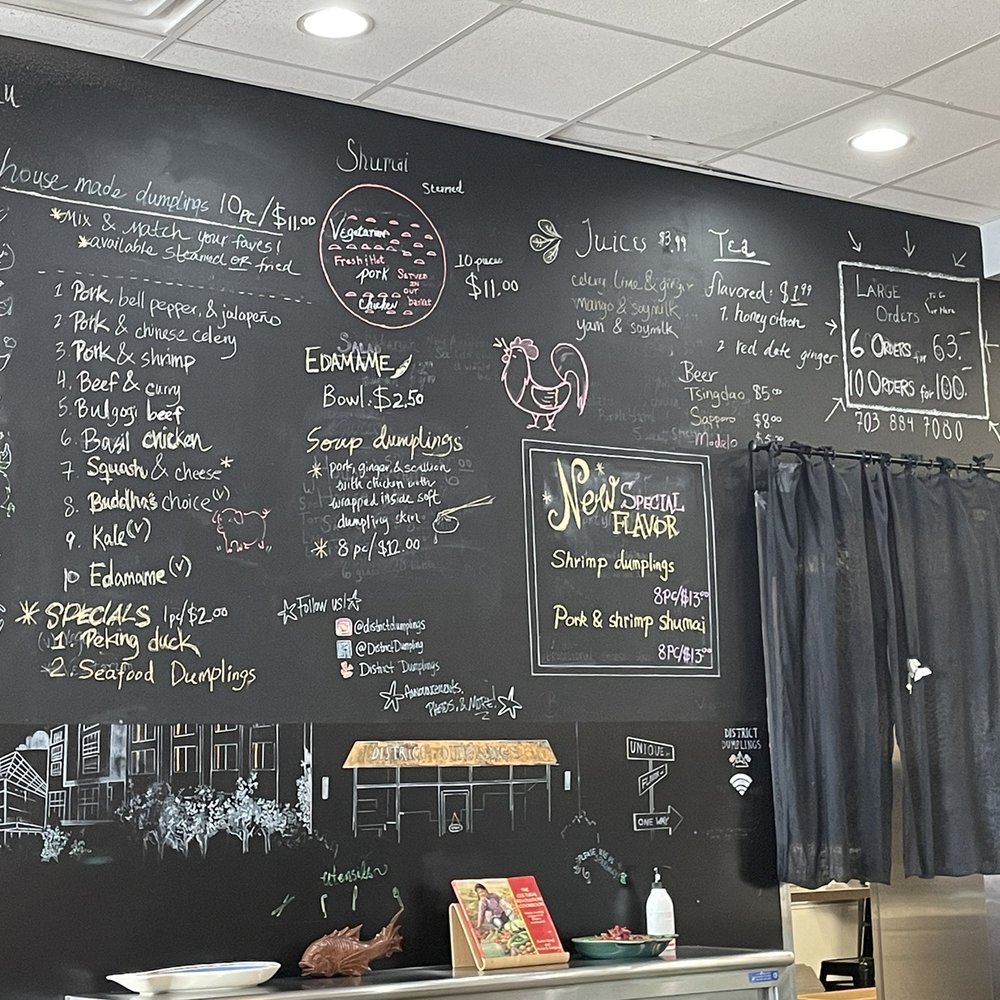 house made dumplings 10pc/$11.00
*Mix & Match your faves!
*available steamed or fried
1 Pork, bell pepper, & jalapeño
2 Pork & chinese celery
3. Pork & shrimp
4. Beef & curry
5. Bulgogi beef
6. Basil chicken
7. Squash & cheese*
8. Buddha's choice (v)
9. Kale (v)
10 Edamame (v)
*SPECIALS 1pc/$2.00
1. Peking duck
2. Seafood Dumplings
Shumai
Steamed
Vegetarian
Fresh & Hot
pork
Served
in
our
basket
Chicken
10 pieces
$11.00
EDAMAME
Bowl: $2.50
Soup dumplings
* pork, ginger, & scallion
with chicken broth
wrapped inside soft
dumpling skin
* 8 pc/$12.00
Follow us!
@districtdumplings
@DistrictDumpling
District Dumplings
Announcements,
Photos, & More!
Juices $3.99
celery lime & ginger
mango & soymilk
yam & soymilk
Tea
flavored: $1.99
1. honey citron
2 red date ginger
Beer
Tsingdao $5.00
Sapporo $8.00
Modelo $5.00
Large
Orders
To Go
or Here
6 Orders for 63.-
10 Orders for 100.-
703 884 7080
*New* Special
Flavor
Shrimp dumplings
8pc/$13.00
Pork & shrimp shumai
8pc/$13.00
DISTRICT DUMPLINGS
OPEN
UNIQUE
FLAVOR
ONE WAY
DISTRICT
DUMPLINGS
utensils
THE
CULTURAL
REVOLUTION
COOKBOOK